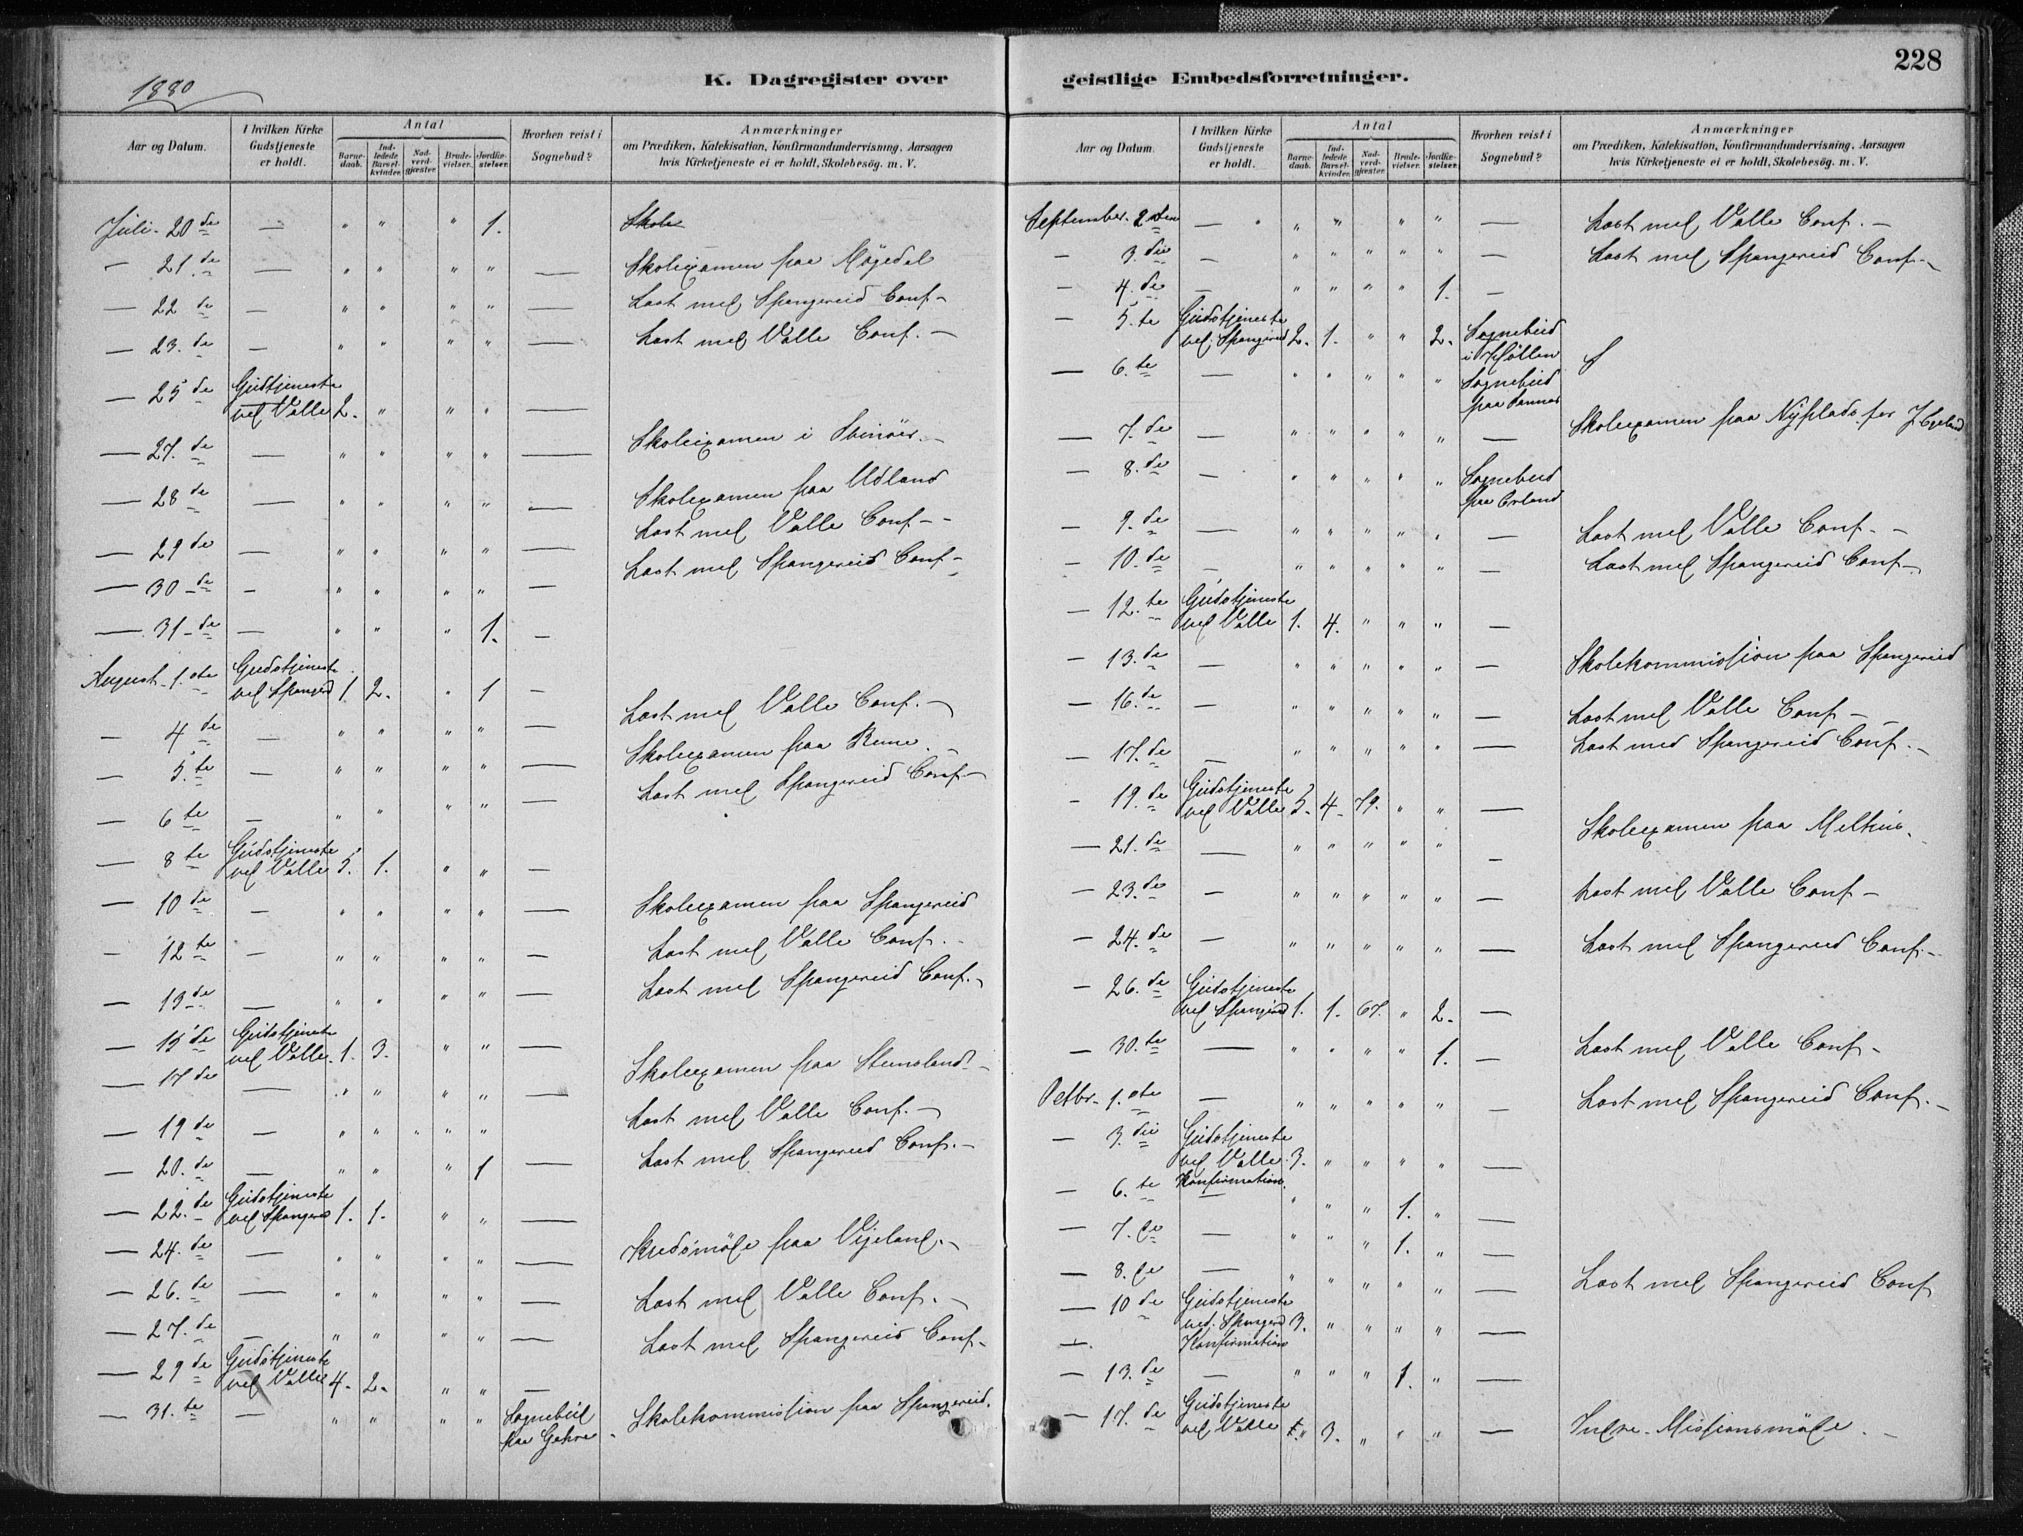 228
1880
K. Dagregister over geistlige Embedsforretninger.
Aar og Datum.
I hvilken Kirke Gudstjeneste er holdt.
Antal
Barnedaab.
Indledede Barselkvinder.
Nadverdgjæster.
Brudevielser.
Jordfæstelser.
Hvorhen reist i Sognebud?
Anmærkninger
om Prædiken, Katekisation, Konfirmandundervisning, Aarsagen
hvis Kirketjeneste ei er holdt, Skolebesøg. m. V.
Juli. 20de — " " " 1. Skole
— 21.de — " " " " — Skolexamen paa Møgedal
— 22de — " " " " — Læst med Spangereid Conf —
— 23.de — " " " " — Læst med Valle Conf. —
— 25de Gudstjeneste ved Valle 2. " " " —
— 27.de — " " " " — Skolexamen i Svinöer. —
— 28de — " " " " — Skolexamen paa Udland
— 29de — " " " " — Læst med Valle Conf — -
— 30-de — " " " " — Læst med Spangereid Conf —
— 31-de — " " " 1. —
August. 1.ste Gudstjeneste ved Spangerd 1. 2. " 1 —
— 4de — " " " " — Læst med Valle Conf. —
— 5.te — " " " " — Skolexamen paa Reme. —
— 6te — " " " " — Læst med Spangereid Conf. —
— 8te Gudstjeneste ved Valle 5. 1. " " —
— 10de — " " " " — Skolexamen paa Spangereid
— 12te — " " " " — Læst med Valle Conf. -
— 13de — " " " " — Læst med Spangereid Conf. -
— 15de Gudstjeneste ved Valle. 1. 3. " " —
— 17de — " " " " Skolexamen paa Stensland. -
— 19de — " " " " " Læst med Valle Conf. —
— 20.de — " " " 1 — Læst med Spangereid Conf. —
— 22.de Gudstjeneste ved Spangereid 1. 1. " " —
— 24.de — " " " " — Kredsmøde paa Vigeland. -
— 26.de — " " " " — Læst med Valle Conf. —
— 27.de — " " " " — Læst med Spangereid Conf. -
— 29de Gudstjeneste ved Valle 4. 2. " " —
— 31.te — " " " " Sognebud paa Gahre Skolekommission paa Spangereid.
Aar og Datum.
I hvilken Kirke Gudstjeneste er holdt.
Antal
Barnedaab.
Indledede Barselkvinder.
Nadverdgjæster.
Brudevielser.
Jordfæstelser.
Hvorhen reist i Sognebud?
Anmærkninger
om Prædiken, Katekisation, Konfirmandundervisning, Aarsagen
hvis Kirketjeneste ei er holdt, Skolebesøg. m. V.
September. 2den — " " " " — Læst med Valle Conf. —
— 3.die — " " " " " — Læst med Spangereid Conf. -
— 4.de — " " " " 1. —
— 5.te Gudstjeneste ved. Spangereid 2. 1. " " 2. Sognebud i Høllen
— 6.te — " " " " " Sognebud paa
— 7.de — " " " " " — Skolexamen paa Nyplads. for
— 8.de — " " " " " Sognebud paa
— 9.de — " " " " " — Læst med Valle Conf. —
— 10.de — " " " " " — Læst med Spangereid Conf -
— 12.te Gudstjeneste ved Valle 1. 4. " " " —
— 13.de — " " " " " — Skolekommission paa Spangereid
— 16.de — " " " " " — Læst med Valle Conf —
— 17.de — " " " " " — Læst med Spangereid Conf. -
— 19.de Gudstjeneste ved Valle 5. 4. 79. " " —
— 21.de — " " " " " — Skolexamen paa
— 23.de — " " " " " — Læst med Valle Conf —
— 24.de — " " " " " — Læst med Spangereid Conf. —
— 26.de Gudstjeneste ved Spangereid 1. 1. 67. " 2. —
— 30.te — " " " " 1. — Læst med Valle Conf —
Octbr. 1.ste — " " " " " — Læst med Spangereid Conf. —
— 3.die Gudstjeneste ved Valle. 3. " " " " —
Konfirmation.
— 6.te — " " " 1. " —
— 7.de — " " " 1. " —
— 8.de — " " " " " — Læst med Spangereid Conf
— 10de Gudstjeneste ved. Spangerd 3. " " " " —
Konfirmation
— 13.de — " " " 1. " —
— 17.de Gudstjeneste ved Valle 3. " " " — Indre-Missionsmøde. —